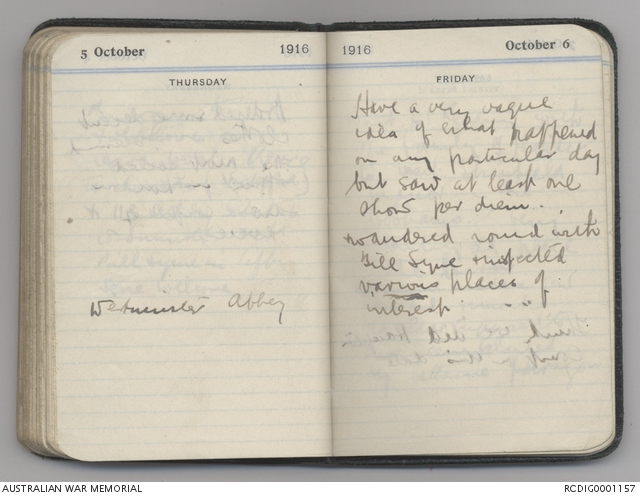 5 October 1916
THURSDAY
Westminster Abbey
1916 October 6
FRIDAY
Have a very vague
idea of what happened
on any particular day
but saw at least one
show per diem.
wandered round with
Bill Syme & inspected
various places of
interest. " " "
AUSTRALIAN WAR MEMORIAL
RCDIG0001157